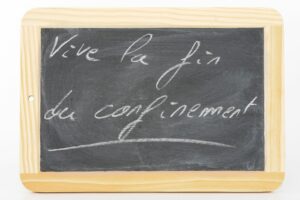 Vive la fin
du confinement